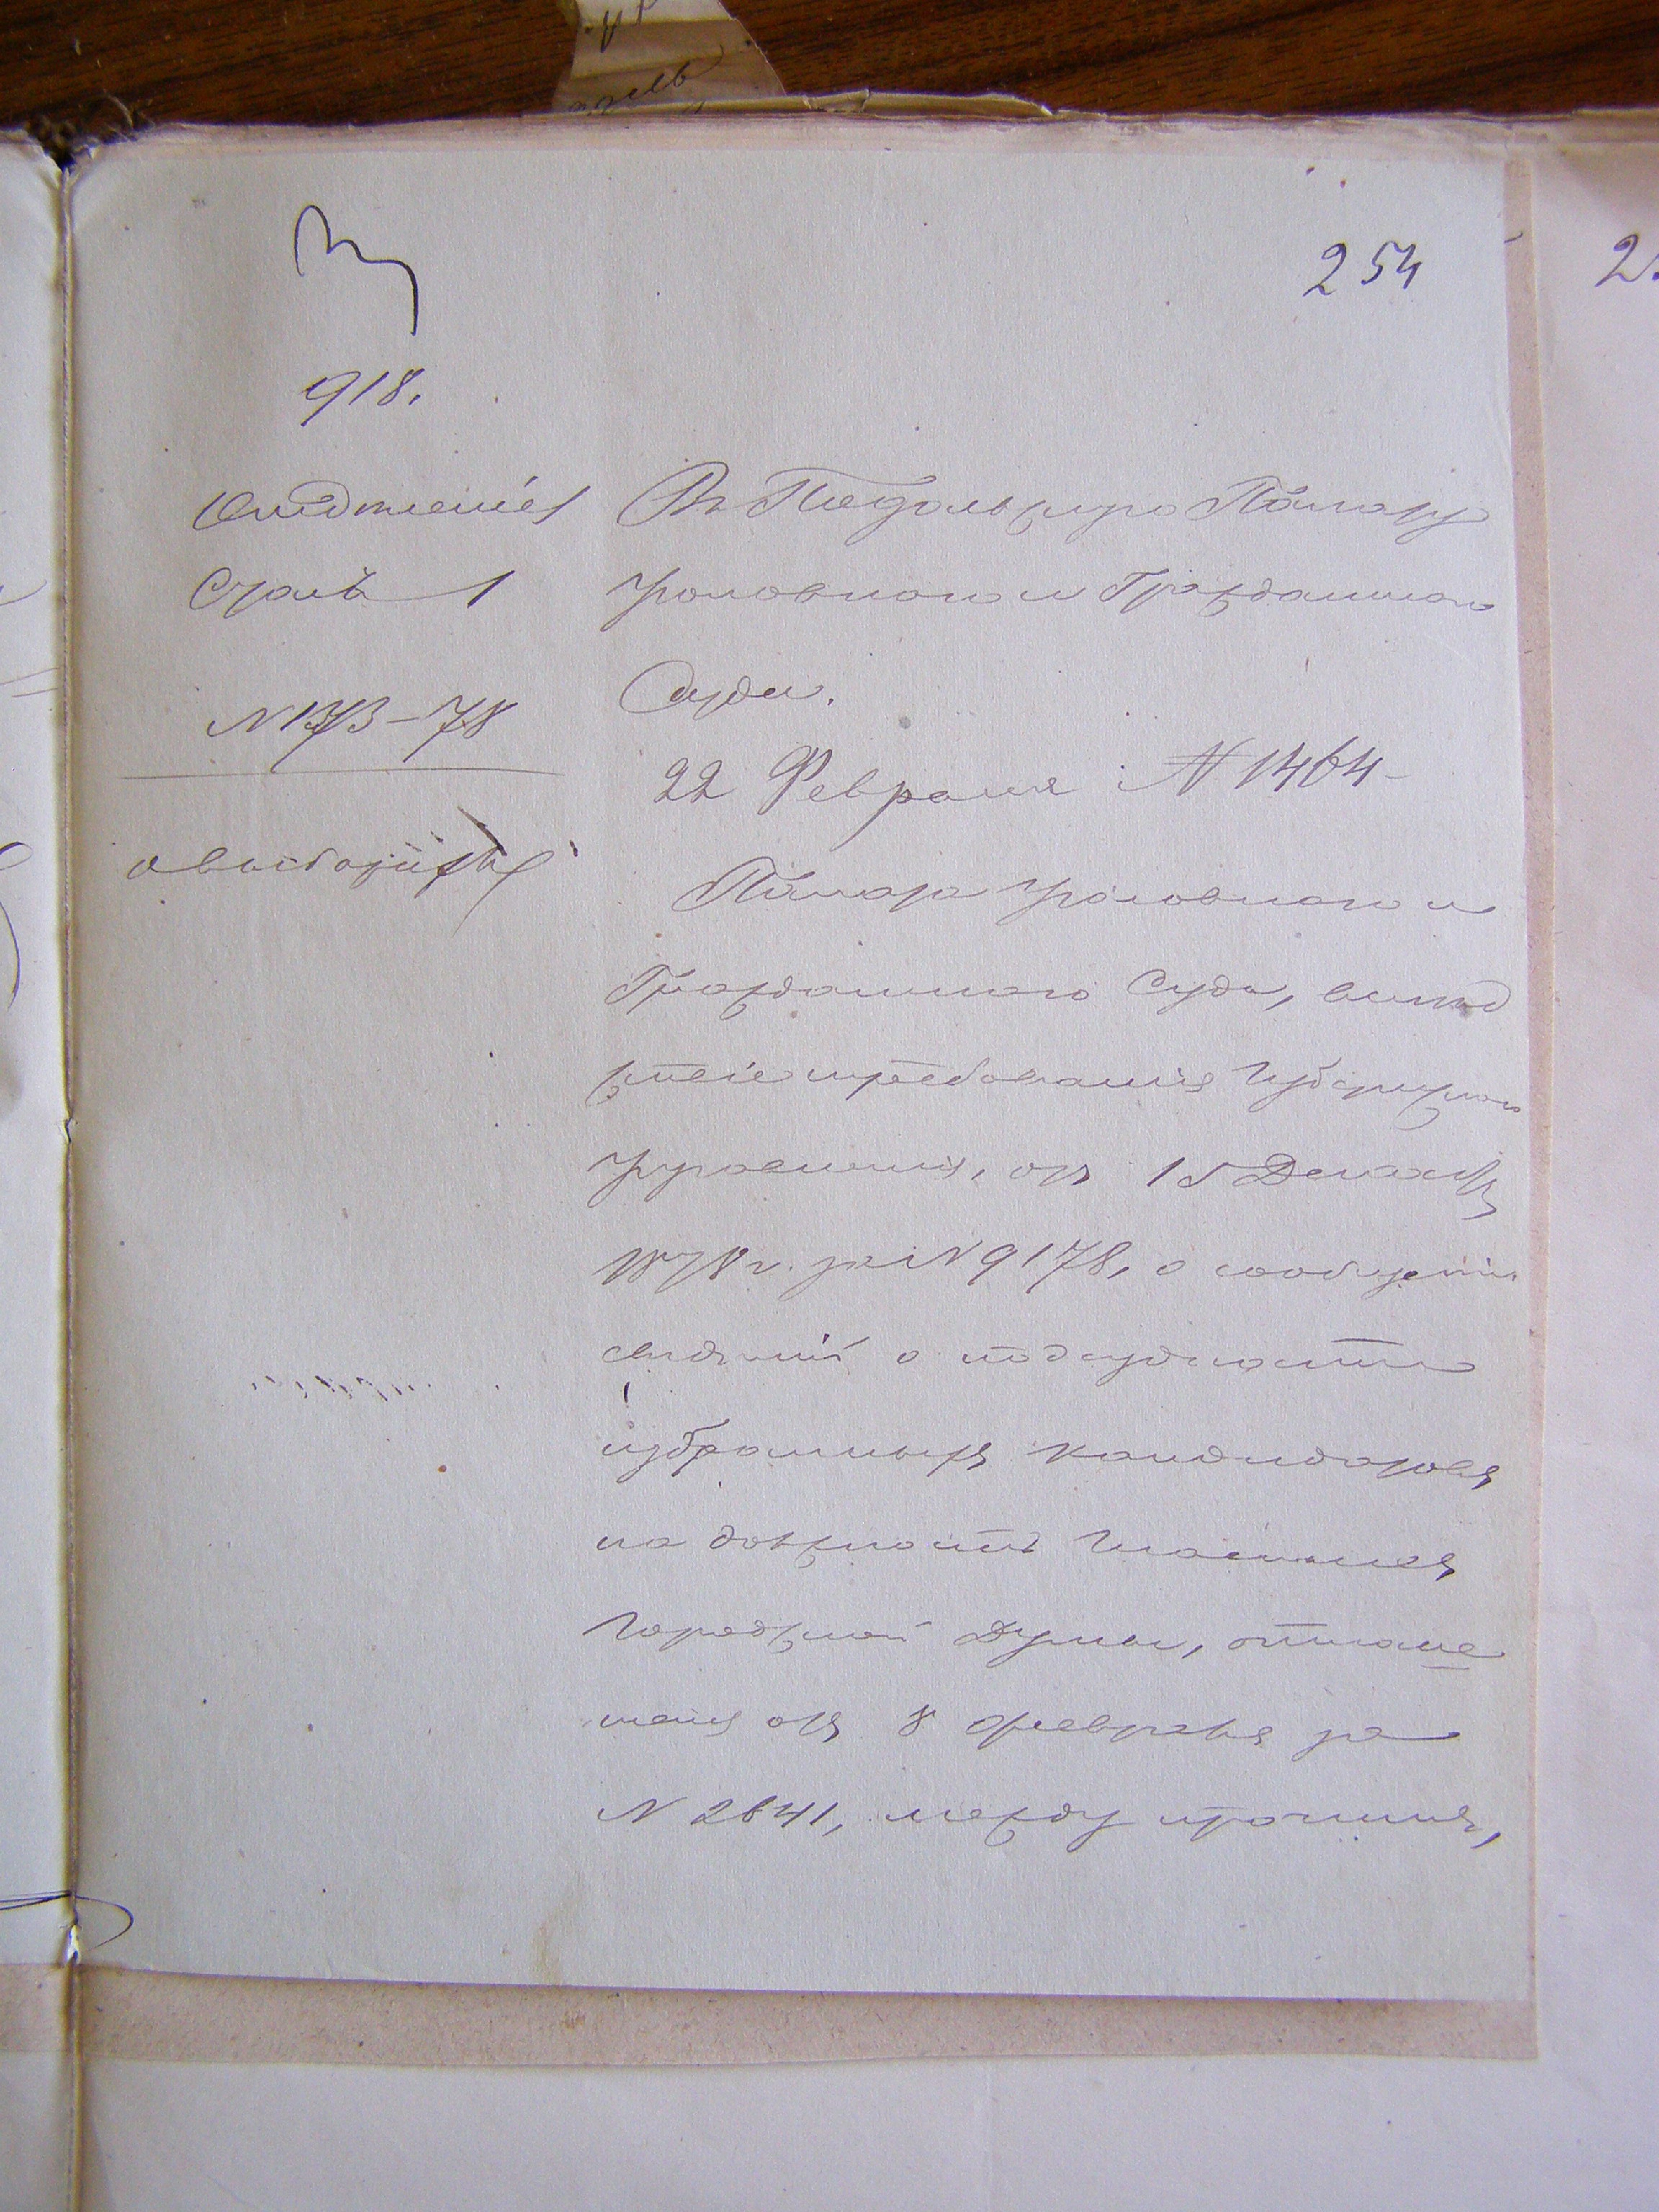 254
918.
Отдѣленіе
Столъ 1
N 173–78
о выборахъ
Въ Подольскую Палату
Уголовнаго и Гражданскаго
Суда.
22 Февраля N 1464
Палата Уголовнаго и
Гражданскаго Суда, вслѣд
ствіе требованія Губернскаго
Правленія, отъ 15 Декабря
1878 г. за N 9178, о сообщеніи
свѣдѣній о подсудности
избранныхъ кандидатовъ
на должность Гласныхъ
Городской Думы, отноше
ніемъ отъ 8 февраля за
N 2641, между прочимъ,